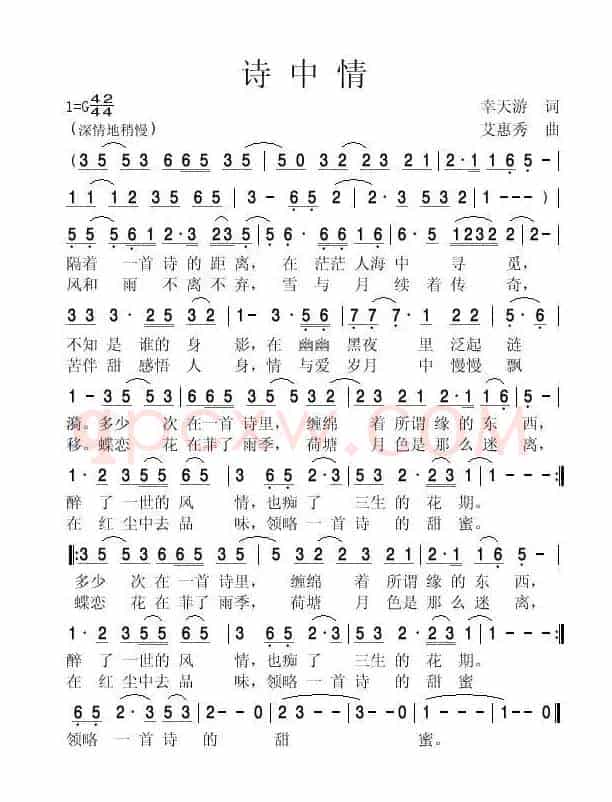 诗中情
1=G 4/4 2/4
幸天游 词
(深情地稍慢)
艾惠秀 曲
(3 5 5 3 6 6 5 3 5 | 5 0 3 2 2 3 2 1 | 2· 1 1 6 5 |
1 1 1 2 3 5 2 1 6 | 3 - 6 5 2 | 2· 3 5 2 3 | 1 - - - )|
5 5 5 5 6 1 2· 3 2 3 | 5 6· 6 5 5 3 | 6· 5 1 2 3 2 2 |
隔着 一首诗的距离, 在茫茫人海中 寻 觅,
风和 雨 不离不弃, 雪与月 续着传 奇,
3 3 3· 2 1 2 3 2 | 1 - 3· 5 6 | 7 7 7· 6 1 5 6 |
不知是谁的身 影, 在幽幽黑夜 里泛起涟
苦伴甜感悟人 身, 情与爱岁月 中慢慢飘
1 - 3 5 | 5 3 6 6 5 3 5 | 5 0 3 2 2 3 2 1 | 2· 1 1 6 5 |
漪。多少 次在一首诗里, 缠绵 着所谓缘的东 西,
移。蝶恋 花在菲了雨季, 荷塘 月色是那么迷 离,
1· 2 3 5 5 5 | 3 - 6 5 2· 3 | 5 3 5 2· 2 3 1 | 1 - - - :|
醉了一世的风 情, 也痴了 三生的花期。
在红尘中去品 味, 领略一首诗的甜蜜。
|: 3 5 5 3 6 6 5 3 5 | 5 0 3 2 2 3 2 1 | 2· 1 1 6 5 |
多少 次在一首诗里, 缠绵 着所谓缘的东 西,
蝶恋 花在菲了雨季, 荷塘 月色是那么迷 离,
1· 2 3 5 5 5 | 3 - 6 5 2· 3 | 5 3 5 2· 2 3 1 | 1 - - - :|
醉了一世的风 情, 也痴了 三生的花 期。
在红尘中去品 味, 领略一首诗的甜蜜
6 5 2· 3 5 3 5 | 2 - - 0 | 2 3 - 0 | 1 - - - | 1 - - 0 ||
领略一首诗 的 甜 蜜。